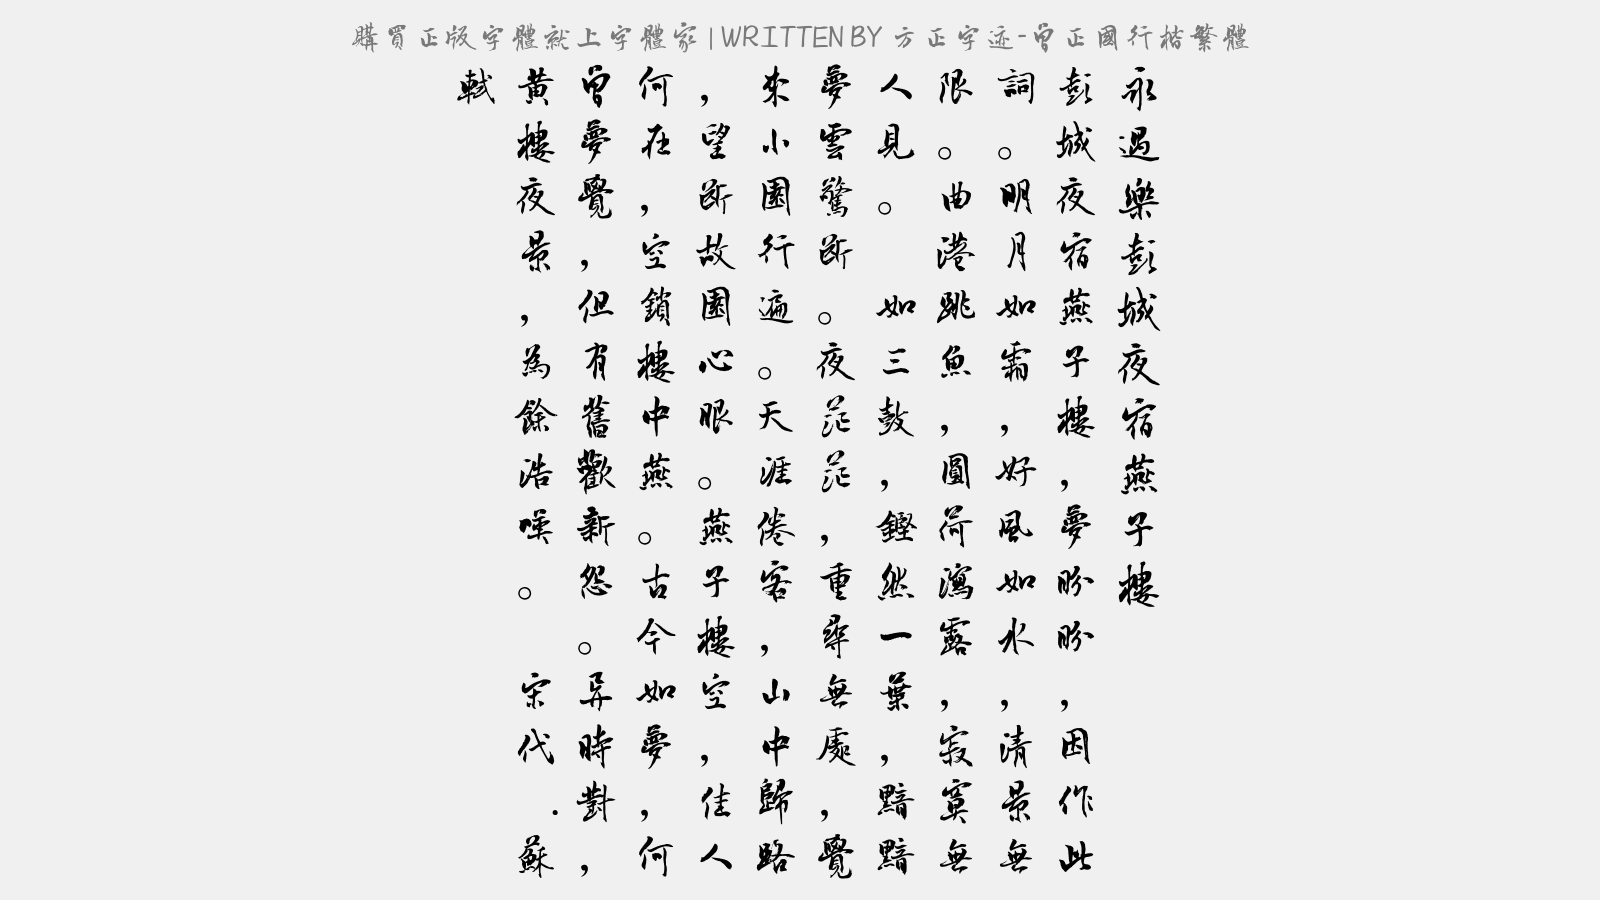 購買正版字體就上字體家 | WRITTEN BY 方正字迹-曾正國行楷繁體
永遇樂彭城夜宿燕子樓
彭城夜宿燕子樓，夢盼盼，因作此
詞。明月如霜，好風如水，清景無
限。曲港跳魚，圓荷瀉露，寂寞無
人見。 如三鼓，鏗然一葉，黯黯
夢雲驚斷。夜茫茫，重尋無處，覺
來小園行遍。天涯倦客，山中歸路
，望斷故園心眼。燕子樓空，佳人
何在，空鎖樓中燕。古今如夢，何
曾夢覺，但有舊歡新怨。异時對，
黃樓夜景，為餘浩嘆。 宋代.蘇
軾